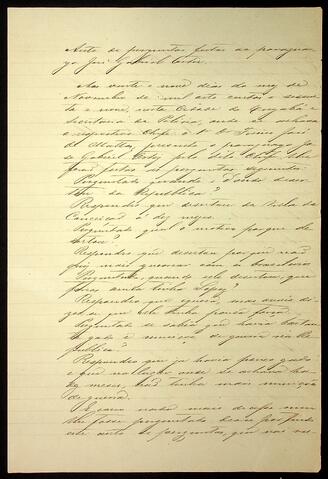 Auto de perguntas feitas ao paraguay
yo José Gabriel
Aos vinte e nove dias do mez de
Novembro de mil oito centos e sessen
ta e nove, nesta Cidade de Cuyabá e
Secretaria de Policia, onde se achava
o respectivo Chefe
de Mattos, presente o paraguayo Jo
sé Gabriel pelo dito Chefe lhe
forão feitas as perguntas seguintes:
Perguntado quando e d'onde deser
tou da Republica?
Respondeu que desertou da Villa da
Conceicão á dez mezes.
Perguntado qual o motivo porque de
sertou?
Respondeu que desertou porque não
quiz mais guerrear com os brasileiros
Perguntado, quando elle desertou, que
forças ainda tinha Lopez?
Respondeu que ignora, mas ouvio di
zer que elle tinha pouca força.
Perguntado se sabia que havia bastan
te gado e munição de guerra na Re
publica?
Respondeu que já havia pouco gado
e que no lugar onde se achava ha
dez mezes, não tinha mais munição
de guerra.
E como nada mais disse nem
lhe fosse perguntado deu-se por findo
este auto de perguntas, que vai